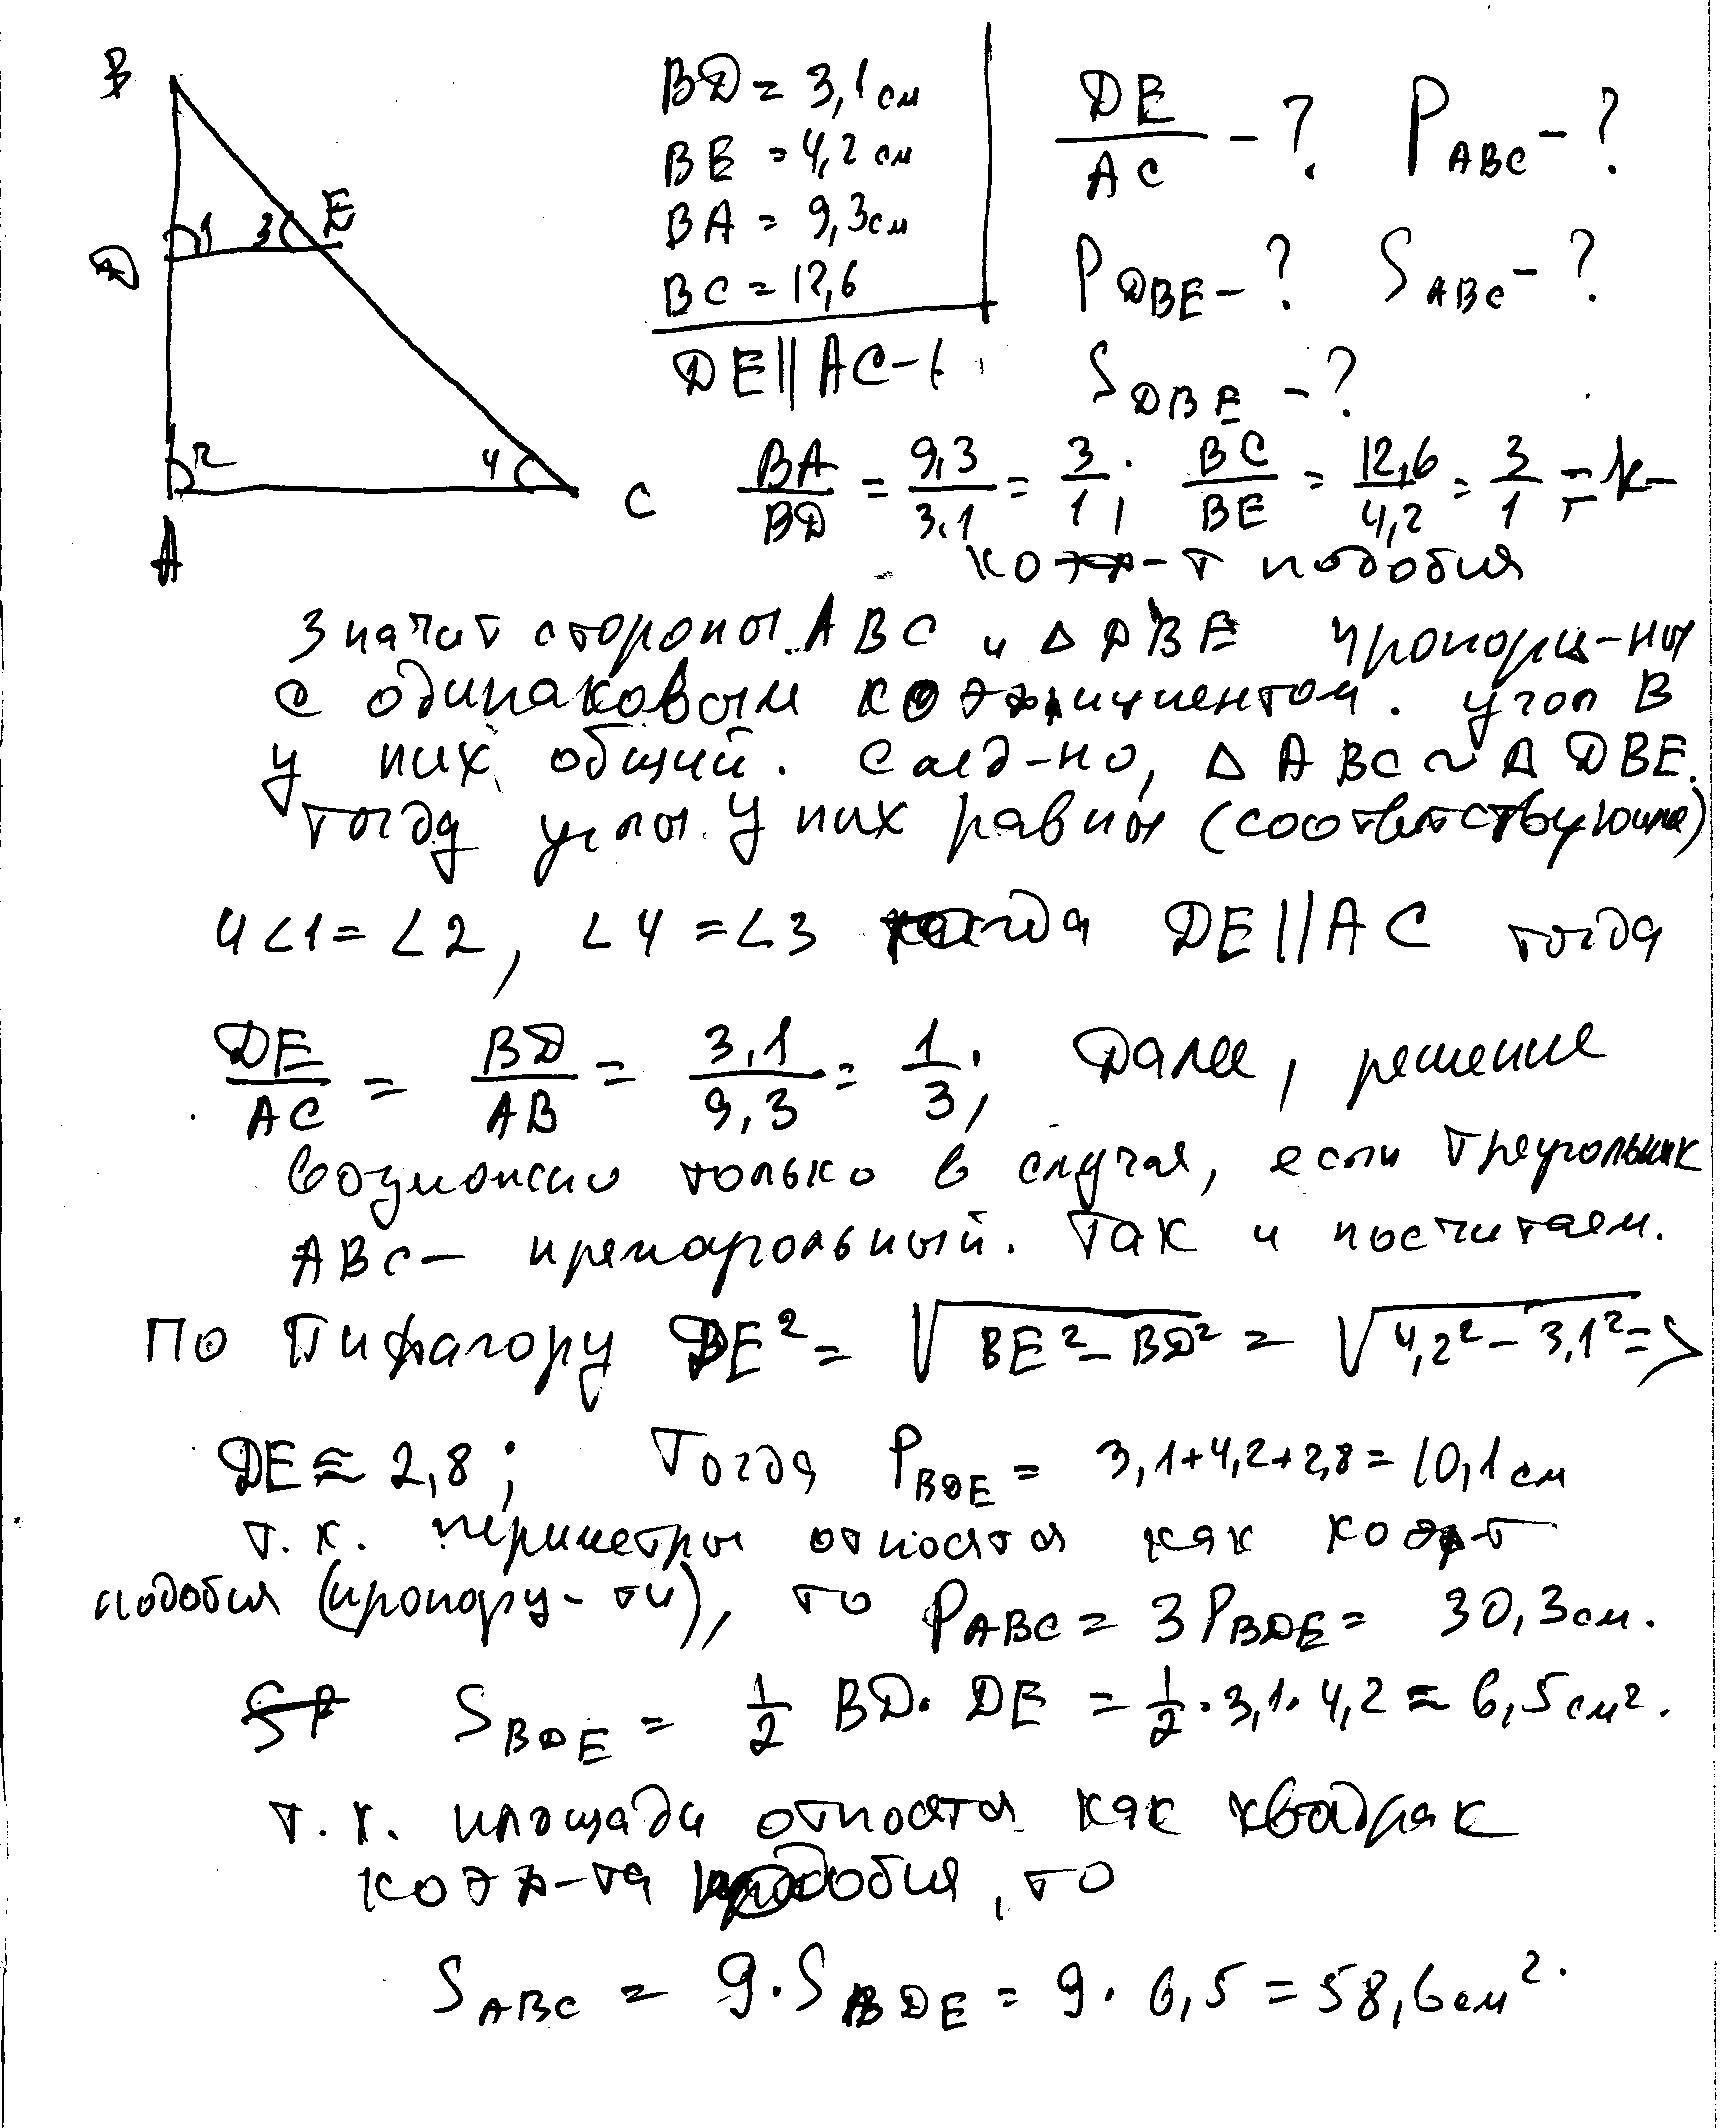 B
BD = 3,1 см
DE/AC - ? P ABC - ?
BE = 4,2 см
BA = 9,3 см
1 3 E
D
BC = 12,6
P DBE - ? S ABC - ?
DE || AC -
S DBE - ?
2 4 C
A
BA/BD = 9,3/3,1 = 3/1; BC/BE = 12,6/4,2 = 3/1 = k -
коэф-т подобия
Значит стороны ABC и Δ DBE пропорц-ны
с одинаковым коэффициентом. угол B
у них общий. След-но, Δ ABC ~ Δ DBE.
тогда углы у них равны (соответствующие)
и ∠1 = ∠2, ∠4 = ∠3 тогда DE || AC тогда
DE/AC = BD/AB = 3,1/9,3 = 1/3; Далее, решение
возможно только в случая, если треугольник
ABC - прямоугольный. Так и посчитаем.
По Пифагору DE² = √(BE² - BD²) = √(4,2² - 3,1²) =>
DE ≈ 2,8; Тогда P BDE = 3,1+4,2+2,8 = 10,1 см
т.к. периметры относятся как коэф-т
подобия (пропорц-ти), то P ABC = 3P BDE = 30,3 см.
S BDE = 1/2 BD · DE = 1/2 · 3,1 · 4,2 = 6,5 см².
т.к. площади относятся как квадрак
коэф-та подобия, то
S ABC = 9 · S BDE = 9 · 6,5 = 58,6 см².